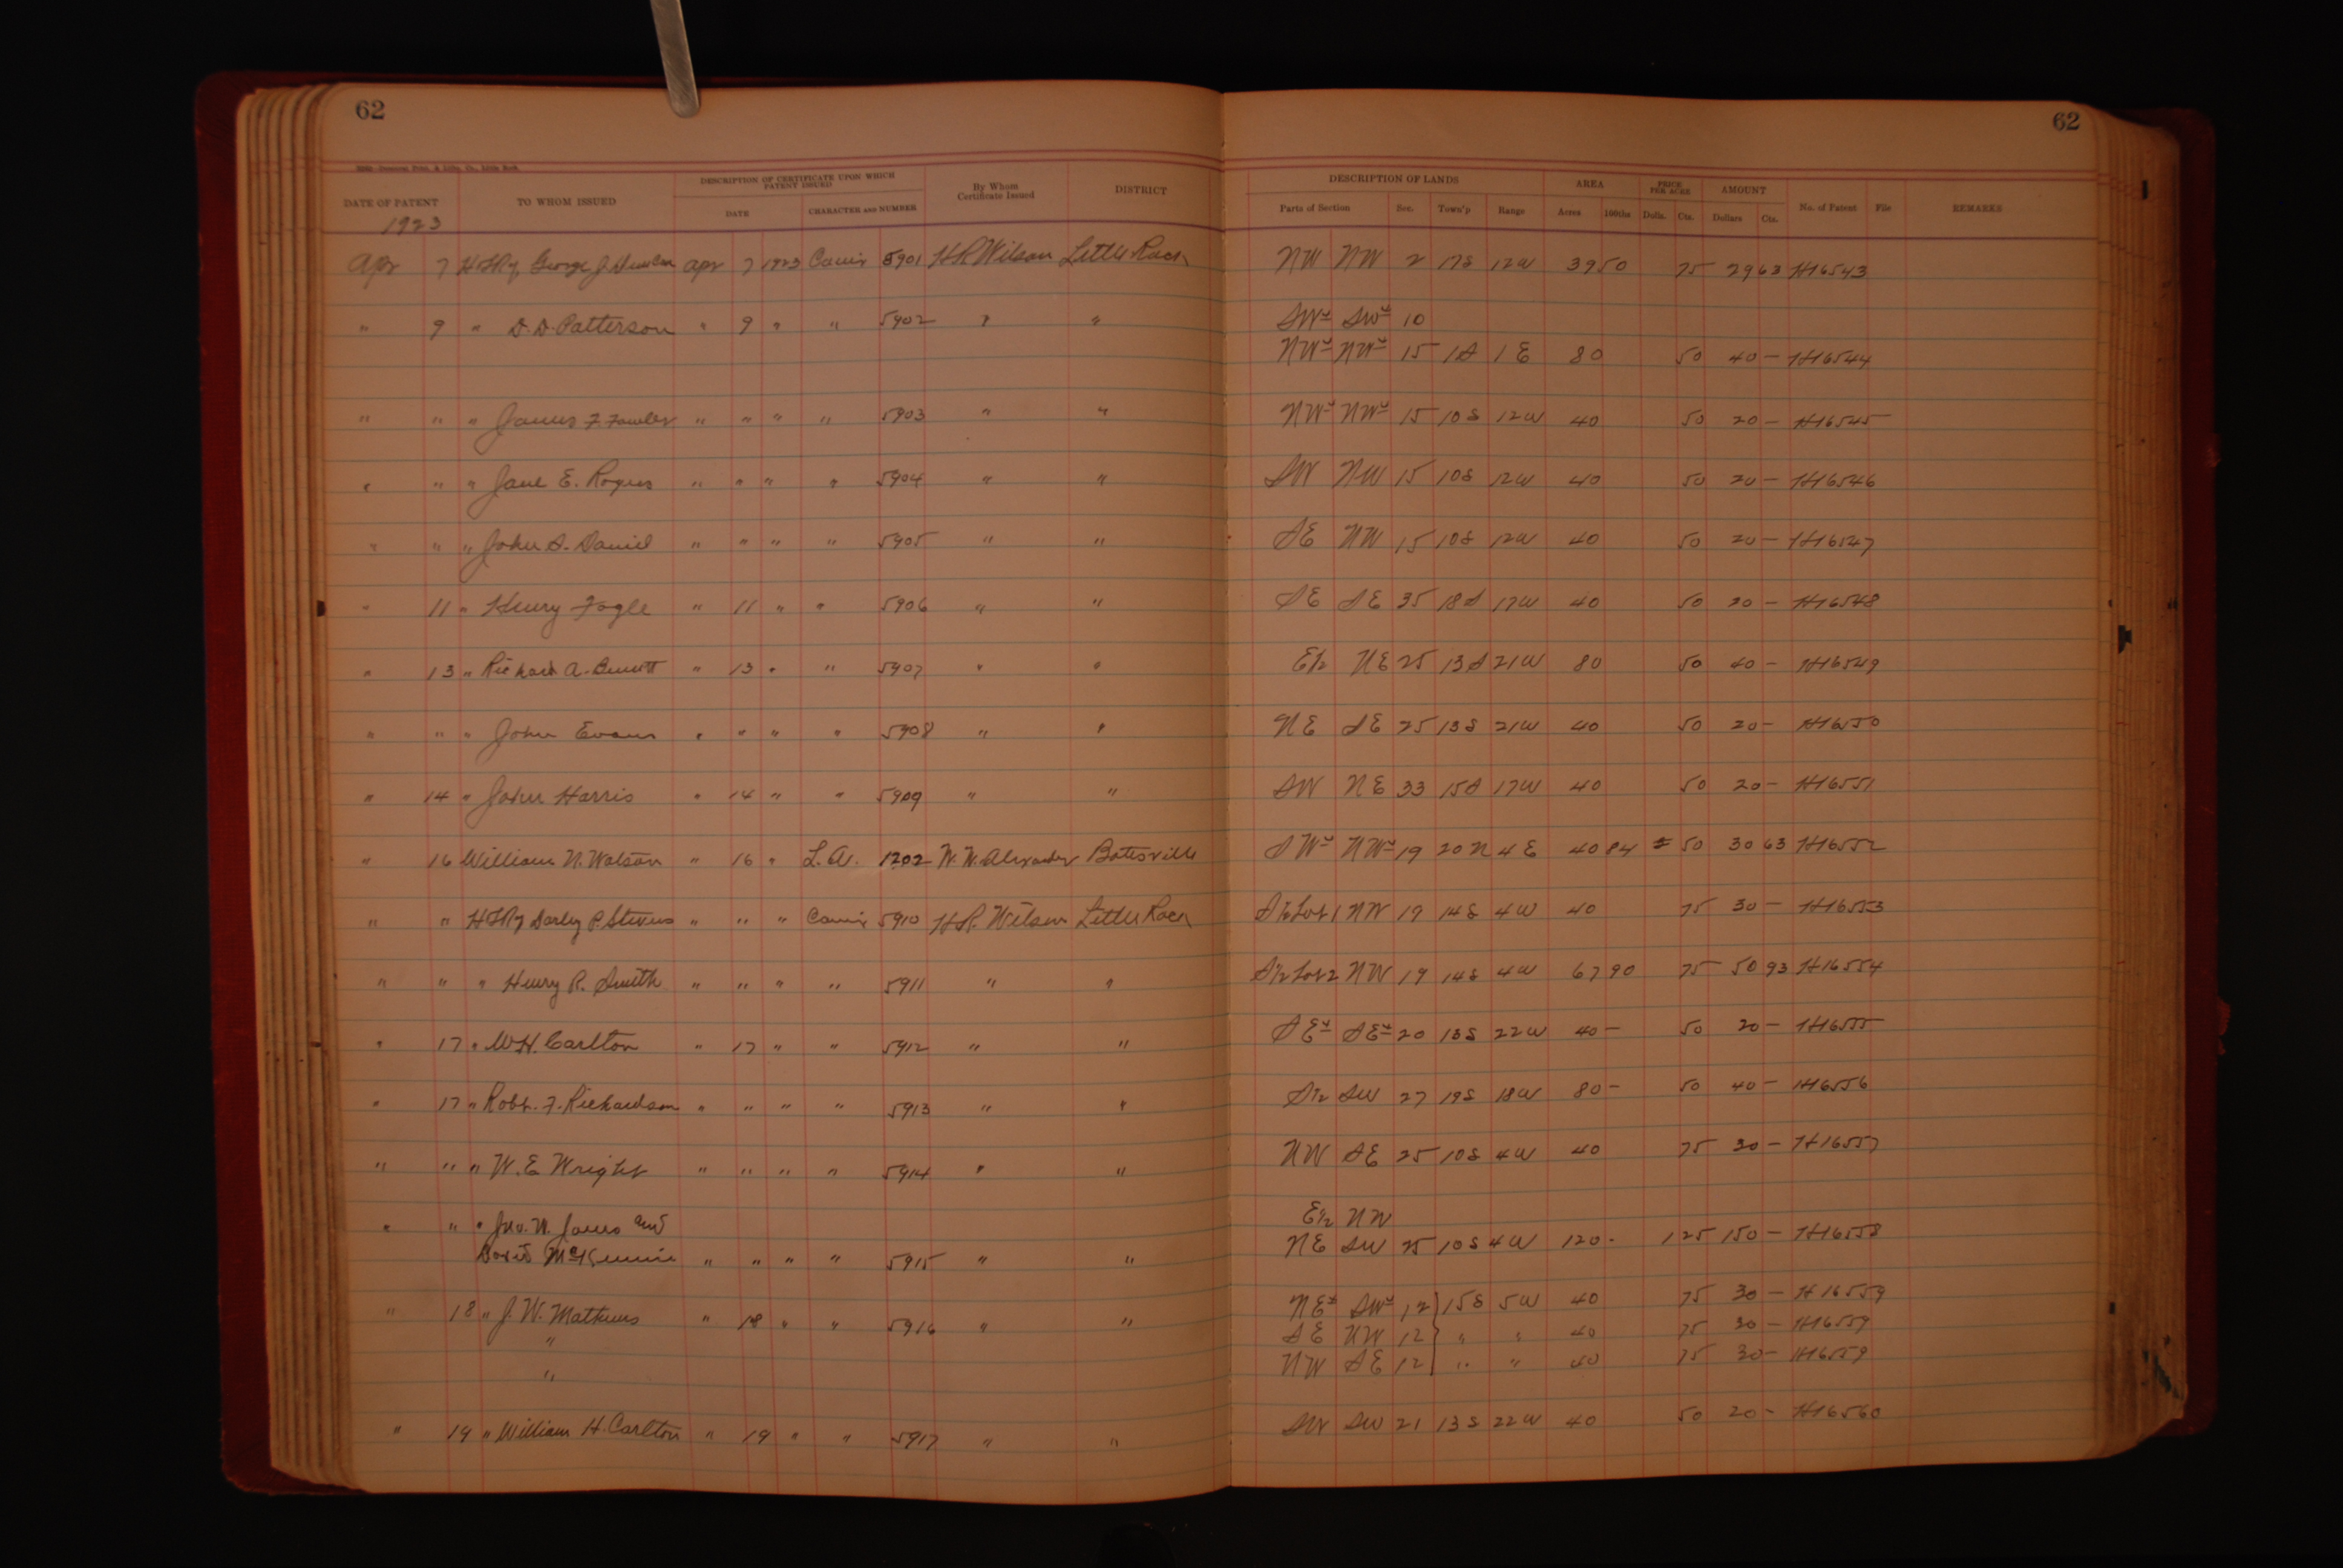 62 62
DATE OF PATENT TO WHOM ISSUED DESCRIPTION OF CERTIFICATE UPON WHICH PATENT ISSUED DATE CHARACTER and NUMBER By Whom Certificate Issued DISTRICT DESCRIPTION OF LANDS Parts of Section Sec. Town'p Range AREA Acres 100ths PRICE PER ACRE Dolls. Cts. AMOUNT Dollars Cts. No. of Patent File REMARKS
1923
Apr 7 George J. Apr 7 1923 5901 H.R. Wilson Little Rock NW NW 2 17S 12W 39 50 75 29 63 H16543
" 9 " D.D. Patterson " 9 " " 5902 " " SW¼ SW¼ 10
NW¼ NW¼ 15 1S 1E 80 50 40 — H16544
" " " James F Fowler " " " " 5903 " " NW¼ NW¼ 15 10S 12W 40 50 20 — H16545
" " " Jane E. Rogers " " " " 5904 " " SW NW 15 10S 12W 40 50 20 — H16546
" " " John S. Daniel " " " " 5905 " " SE NW 15 10S 12W 40 50 20 — H16547
" 11 " Henry Fogle " 11 " " 5906 " " SE SE 35 18S 17W 40 50 20 — H16548
" 13 " Richard A. " 13 " " 5907 " " E½ NE 25 13S 21W 80 50 40 — H16549
" " " John Evans " " " " 5908 " " NE SE 25 13S 21W 40 50 20 — H16550
" 14 " John Harris " 14 " " 5909 " " SW NE 33 15S 17W 40 50 20 — H16551
" 16 William N. Watson " 16 " L.A. 1202 W.W. Alexander Batesville SW¼ NW¼ 19 20N 4E 40 84 50 30 63 H16552
" " Darley P. Stevens " " " 5910 H.R. Wilson Little Rock S½ Lot 1 NW 19 14S 4W 40 75 30 — H16553
" " " Henry R. Smith " " " " 5911 " " S½ Lot 2 NW 19 14S 4W 67 90 75 50 93 H16554
" 17 " W.H. Carlton " 17 " " 5912 " " SE¼ SE¼ 20 13S 22W 40 — 50 20 — H16555
" 17 " Robt. F. Richardson " " " " 5913 " " S½ SW 27 19S 18W 80 — 50 40 — H16556
" " " W.E Wright " " " " 5914 " " NW SE 25 10S 4W 40 75 30 — H16557
" " " Jno. N. James and E½ NW
David McKennie " " " " 5915 " " NE SW 25 10S 4W 120 - 1 25 150 — H16558
" 18 " J.W. Mathews " 18 " " 5916 " " NE¼ SW¼ 12 15S 5W 40 75 30 — H16559
" SE NW 12 " " 40 75 30 — H16559
" NW SE 12 " " 40 75 30 — H16559
" 19 " William H. Carlton " 19 " " 5917 " " SW SW 21 13S 22W 40 50 20 — H16560